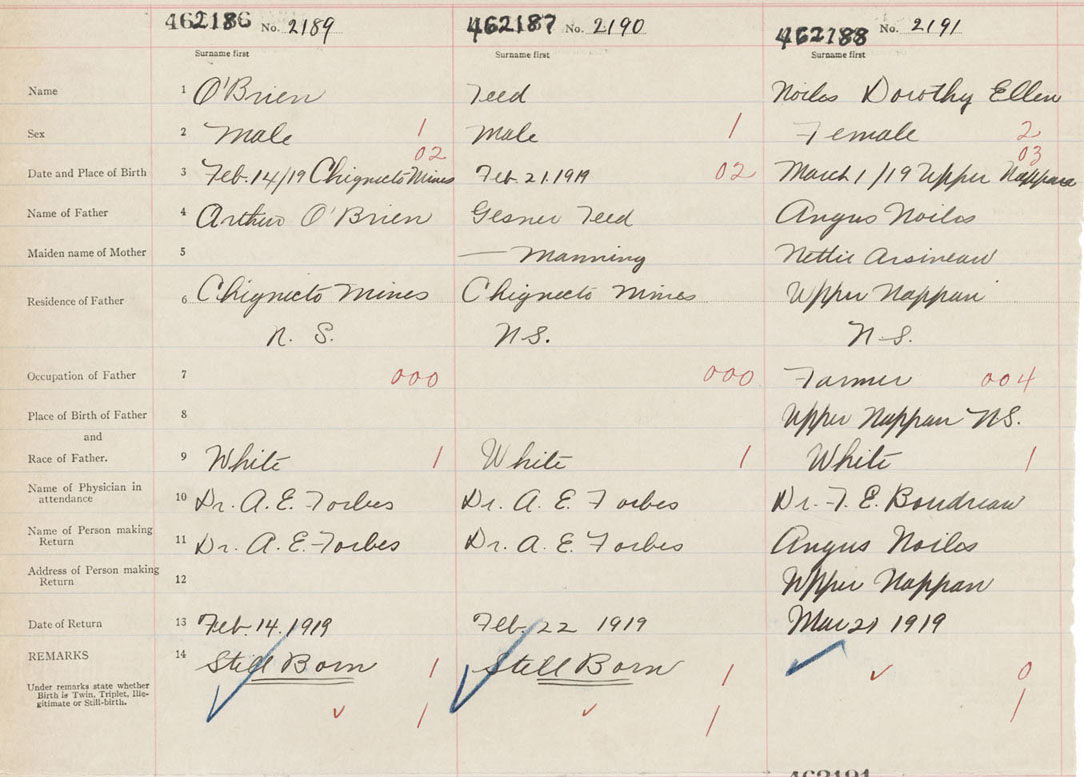 462186 No. 2189 462187 No. 2190 462188 No. 2191
Surname first Surname first Surname first
Name 1 O'Brien Teed Noiles Dorothy Ellen
Sex 2 Male 1 Male 1 Female 2
02 03
Date and Place of Birth 3 Feb. 14/19 Chignecto Mines Feb. 21. 1919 02 March 1/19 Upper Nappan
Name of Father 4 Arthur O'Brien Gesner Teed Angus Noiles
Maiden name of Mother 5 — Manning Nettie Arsineau
Residence of Father 6 Chignecto Mines Chignecto Mines Upper Nappan
N. S. N.S. N.S.
Occupation of Father 7 000 000 Farmer 004
Place of Birth of Father 8 Upper Nappan N.S.
and
Race of Father. 9 White 1 White 1 White 1
Name of Physician in
attendance 10 Dr. A. E. Forbes Dr. A. E. Forbes Dr. F. E. Boudreau
Name of Person making
Return 11 Dr. A. E. Forbes Dr. A. E. Forbes Angus Noiles
Address of Person making
Return 12 Upper Nappan
Date of Return 13 Feb. 14. 1919 Feb. 22 1919 Mar 21 1919
REMARKS 14 Still Born 1 Still Born 1 0
Under remarks state whether
Birth is Twin, Triplet, Ille-
gitimate or Still-birth. 1 1 1